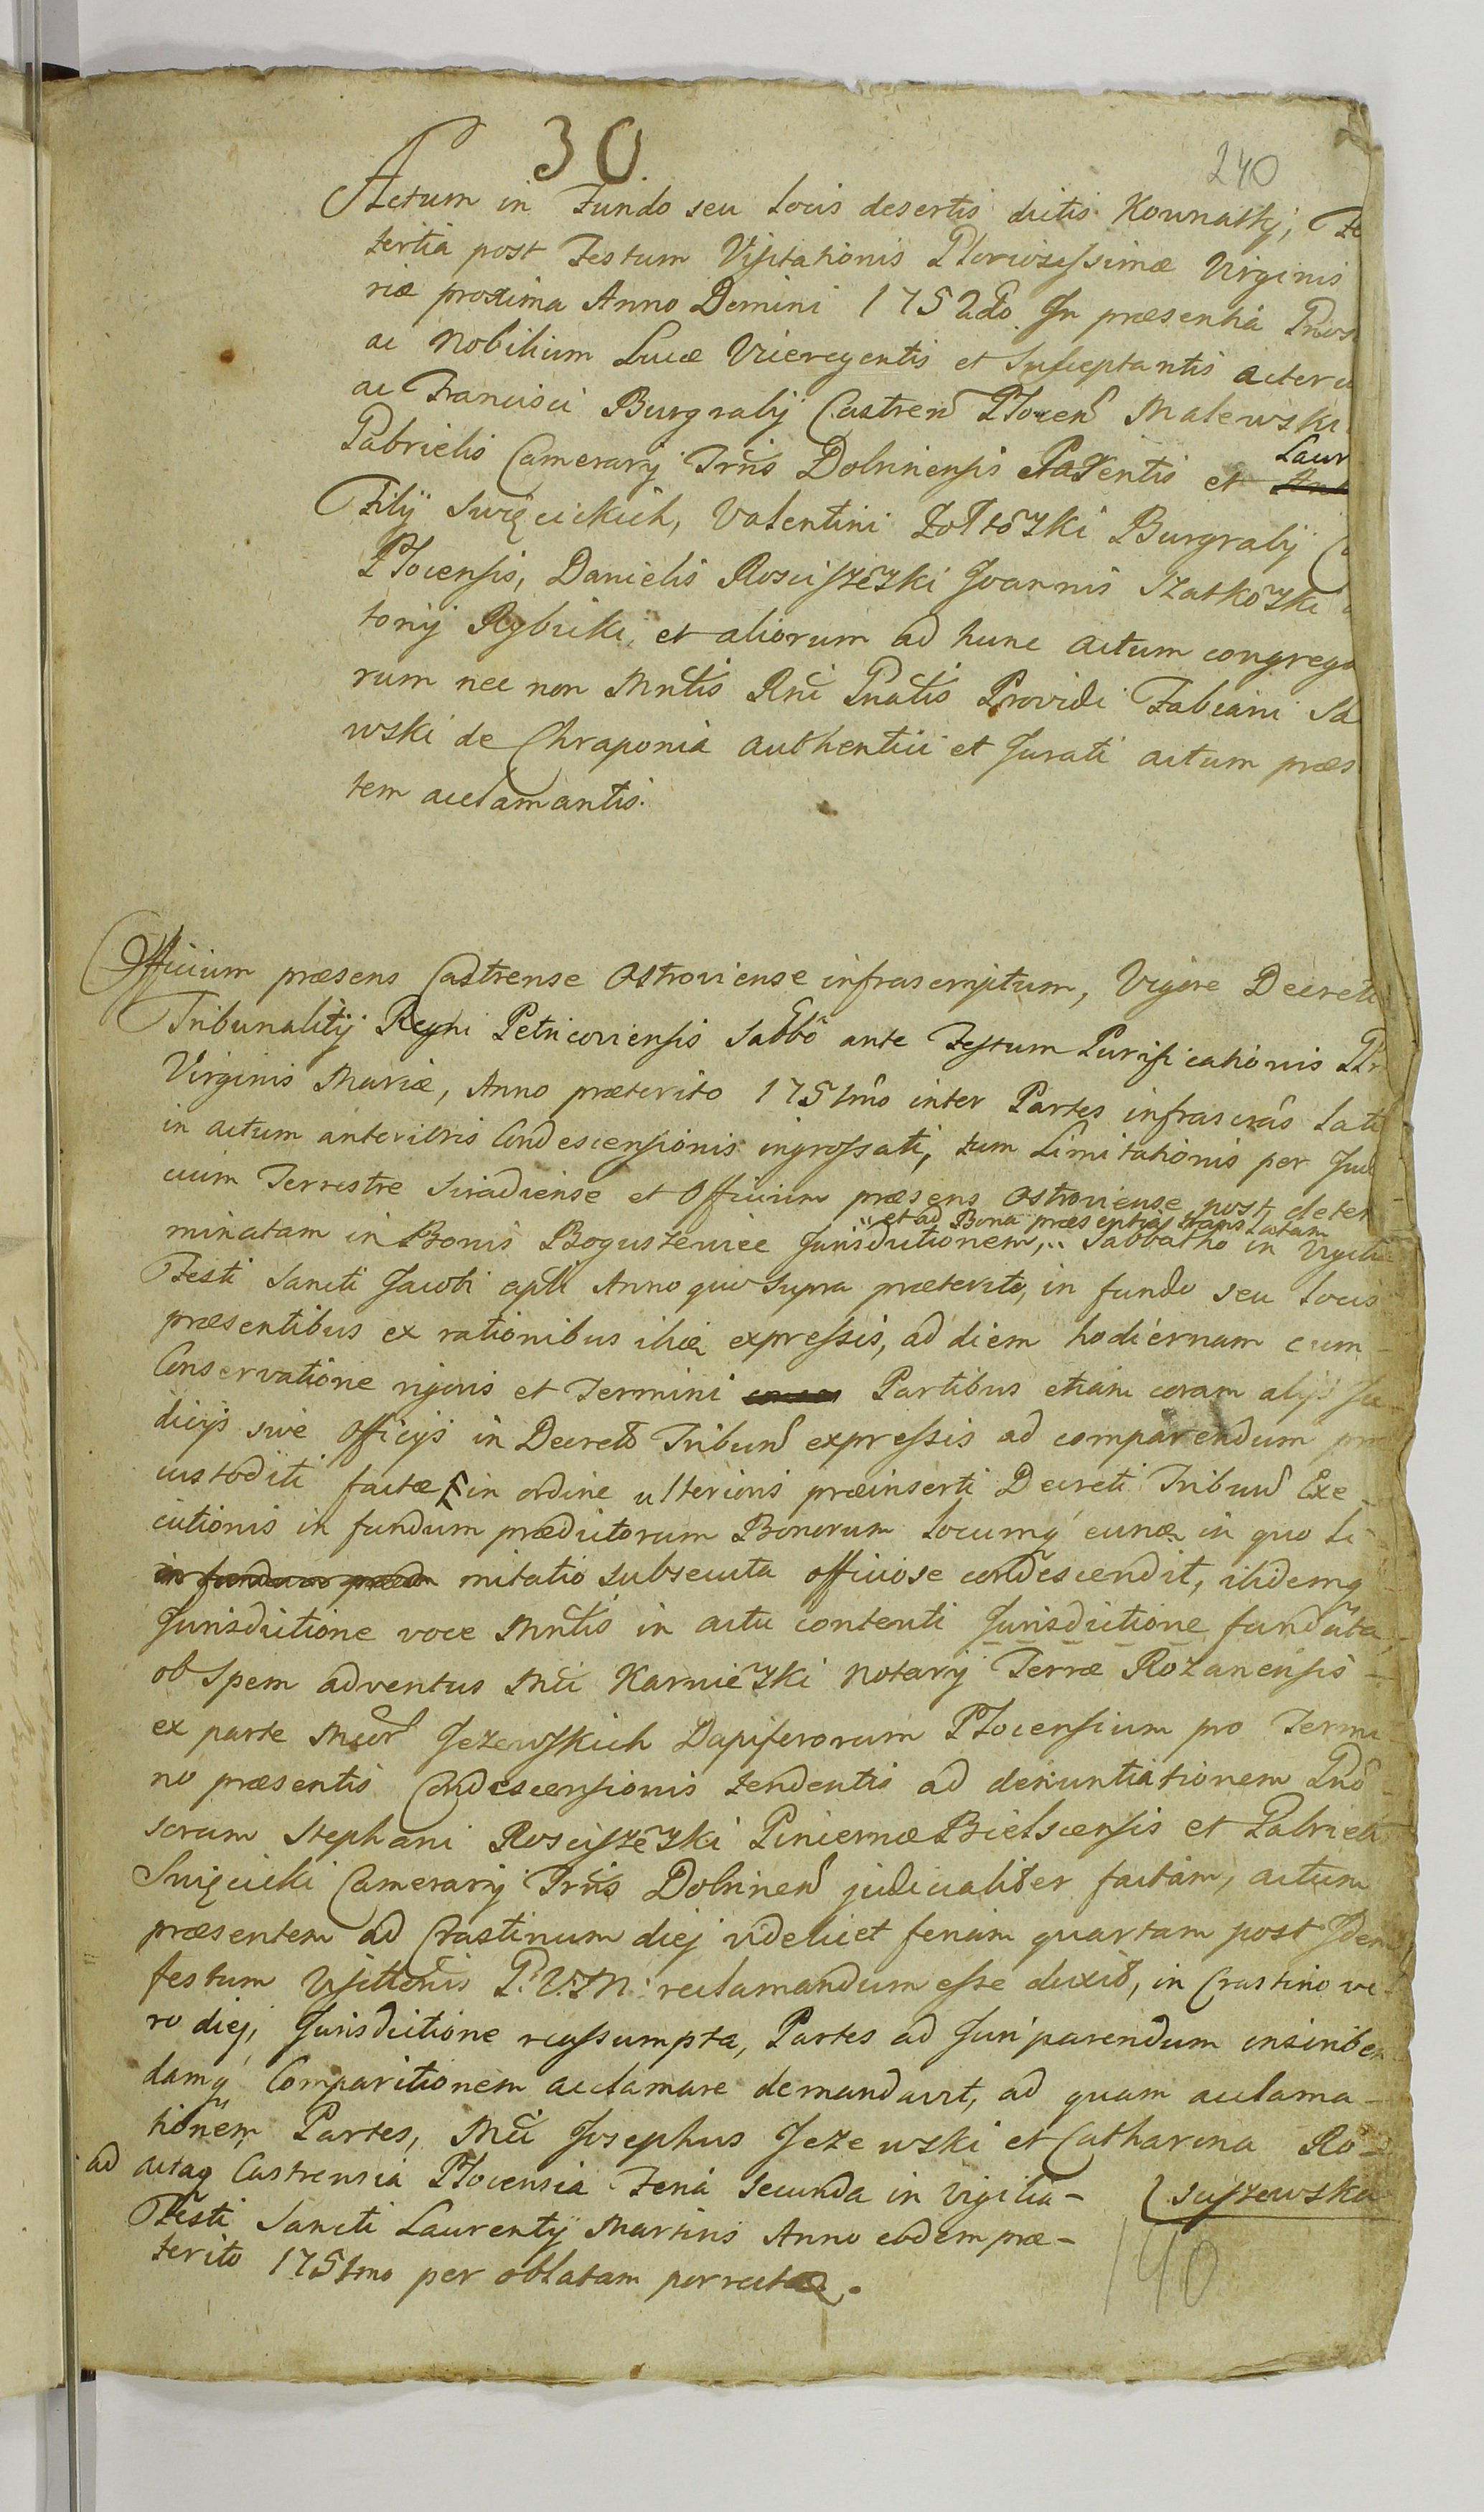 30
240
Actum in Fundo seu locis desertis dictis Kownatky,
tertia post Festum Visitationis Gloriosissimæ Virginis
riæ proxima Anno Domini 1752do In præsentia
ac Nobilium Lucæ Viceregentis et Susceptantis
ac Francisci Burgrabij Castren Plocen Malewski
Laur
Gabrielis Camerarij Trris Dobrinensis Parentis et
Filij Swięcickich, Valentini Zołtoẘski Burgrabij
Plocensis, Danielis Rosciszeẘski Joannis Szatkoẘski
tonij Rybicki, et aliorum ad hunc actum congrega
rum nec non Mntis Rni Gnalis Providi Fabiani Sa
wski de Chraponia authentici et Jurati actum præs
tem acclamantis.
Officium præsens Castrense Ostroviense infrascriptum, Vigore Decreti
Tribunalitij Regni Petricoviensis Sabbo ante Festum Purificationis Gl
Virginis Mariæ, Anno præterito 1751mo inter Partes infrascras lati
in actum anterioris Condescensionis ingrossati, tum Limitationis per Jud
icium Terrestre Siradiense et Officium præsens Ostroviense post deter
et ad Bona præsentia translatam
minatam in Bonis Bogusżewiec Jurisdictionem, Sabbatho in Vigilia
Festi Sancti Jacobi apli Anno quo supra præterito, in fundo seu locis
præsentibus ex rationibus ibiq expressis, ad diem hodiernam cum
Conservatione rigoris et Termini Partibus etiam coram alijs Ju-
dicijs sive Officijs in Decreto Tribunl expressis ad comparendum præ
custoditi factæ in ordine ulterioris præinserti Decreti Tribunl Exe-
cutionis in fundum prædictorum Bonorum locumq eunq in quo Li-
in fundum præd mitatio subsecuta officiose condescendit, ibidemq
Jurisdictione voce Mntis in actu contenti Jurisdictione fundata,
ob spem adventus Mci Karnieẘski Notarij Terræ Rozanensis -
ex parte Mcor Jezewskich Dapiferorum Plocensium pro Termi-
no præsentis Condescensionis tendentis ad denuntiationem Gno-
sorum Stephani Rosciszeẘski Pincernæ Bielscensis et Gabrielis
Swięcicki Camerarij Trris Dobrinen judicialiter factam, actum
præsentem ad Crastinum diej videlicet feriam quartam post Idem
festum Vsittionis G. V. M. reclamandum esse duxit, in Crastino ve-
ro diej, Jurisdictione reassumpta, Partes ad Juri parendum inscriben
damq Comparitionem acclamare demandavit, ad quam acclama-
tionem Partes, Mci Josephus Jezewski et Catharina Ro-
sciszewska
ad actaq Castrensia Plocensia Feria secunda in Vigilia -
Festi Sancti Laurentij Martiris Anno eodem præ-
terito 1751mo per oblatam porrectæ.
140